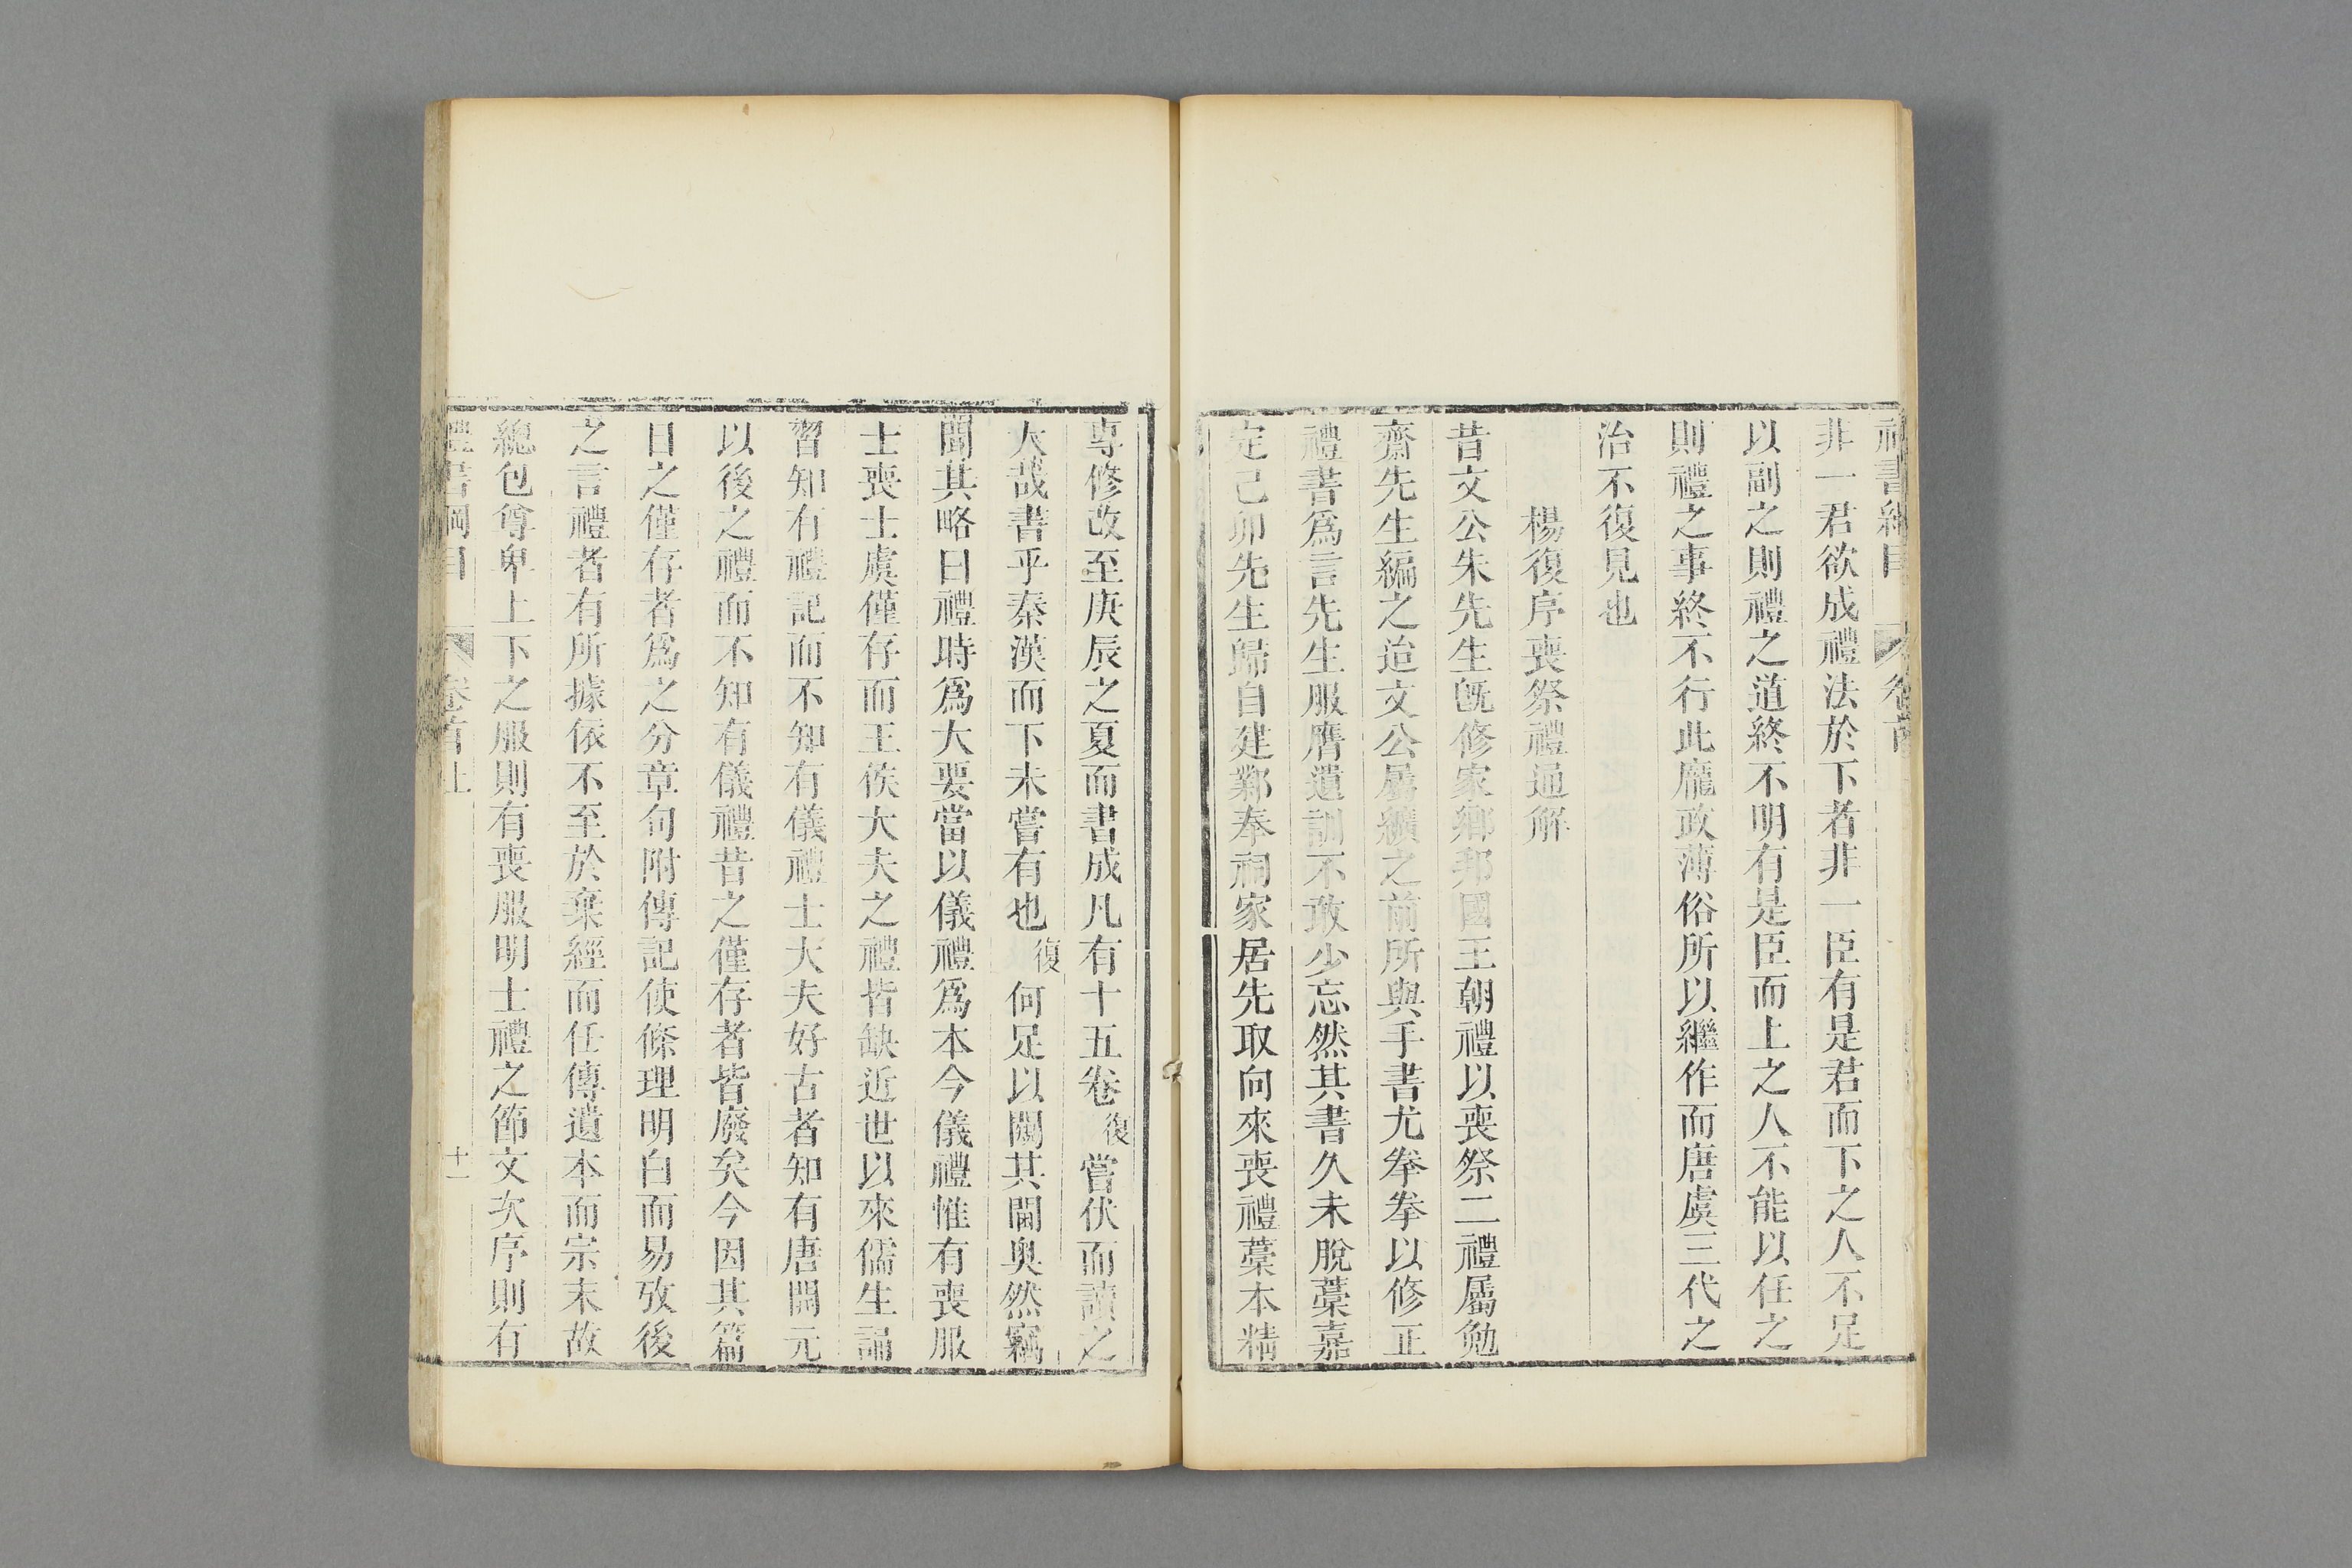 禮書綱目 卷首
非一君欲成禮法於下者非一臣有是君而下之人不足
以副之則禮之道終不明有是臣而上之人不能以任之
則禮之事終不行此龐政薄俗所以繼作而唐虞三代之
治不復見也
楊復序喪祭禮通解
昔文公朱先生旣修家鄉邦國王朝禮以喪祭二禮屬勉
齋先生編之迨文公屬纊之前所與手書尤拳拳以修正
禮書爲言先生服膺遺訓不敢少忘然其書久未脫藁嘉
定己卯先生歸自建鄴奉祠家居先取向來喪禮藁本精
專修改至庚辰之夏而書成凡有十五卷復嘗伏而讀之
大哉書乎秦漢而下未嘗有也復何足以闚其閫奥然竊
聞其略曰禮時爲大要當以儀禮爲本今儀禮惟有喪服
士喪士虞僅存而王侯大夫之禮皆缺近世以來儒生誦
習知有禮記而不知有儀禮士大夫好古者知有唐開元
以後之禮而不知有儀禮昔之僅存者皆廢矣今因其篇
目之僅存者爲之分章句附傳記使條理明白而易攷後
之言禮者有所據依不至於棄經而任傳遺本而宗末故
總包尊卑上下之服則有喪服明士禮之節文次序則有
禮書綱目 卷首上 十一